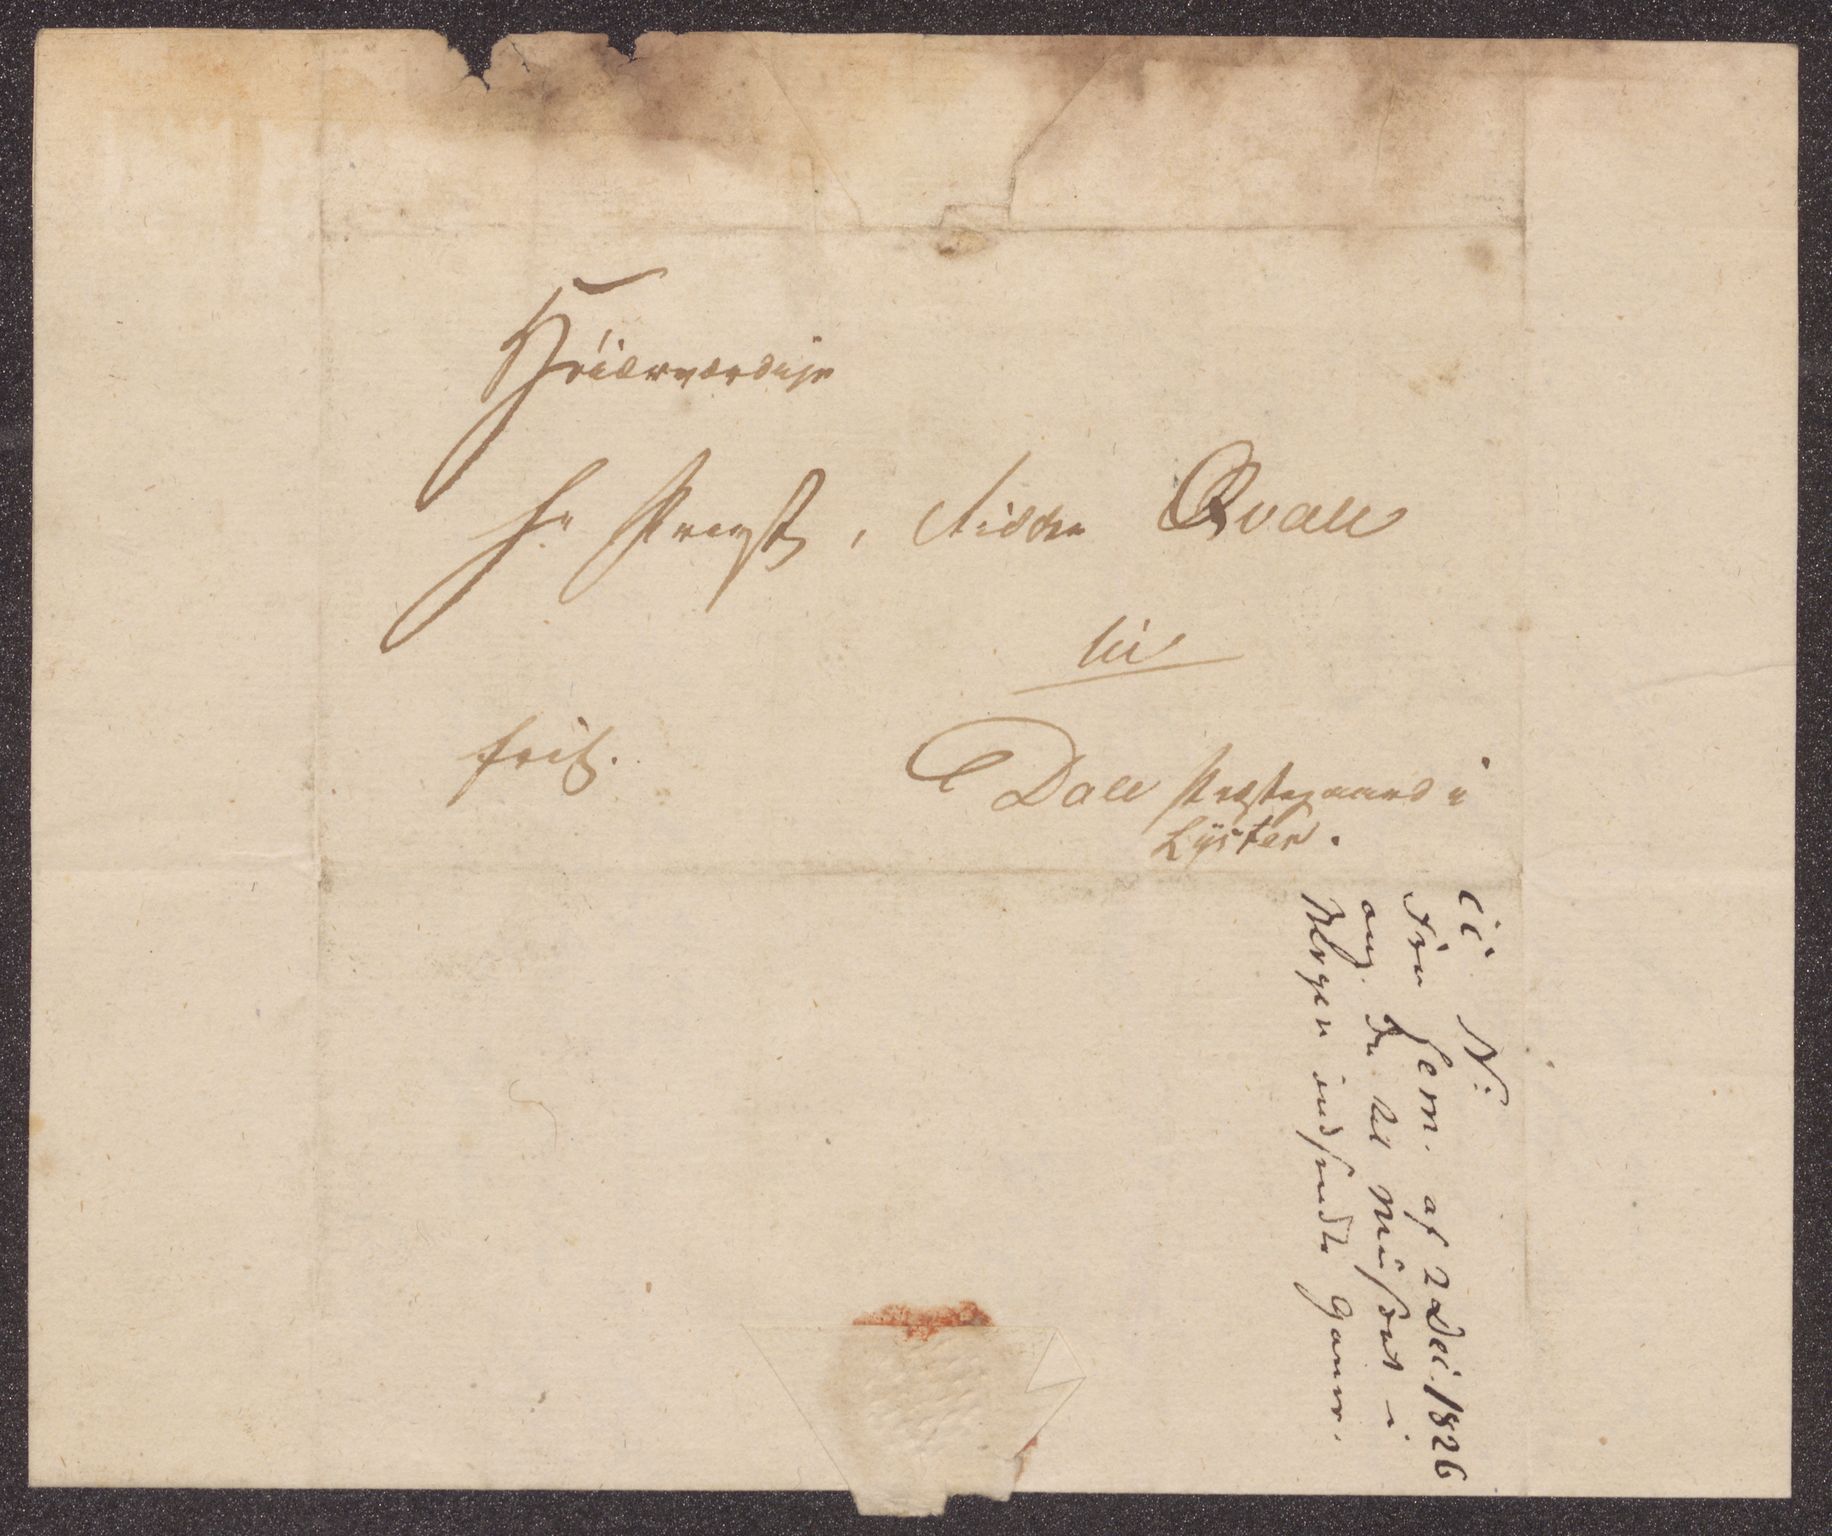 Høiærværdige
Hr Provst, Ridder Qvale
til
frit.
Dale Præstegaard i
Lÿster.
N:
fra Herm. af 2 Dec. 1826
ang. de til Museet i
Bergen indsendte Gaver.